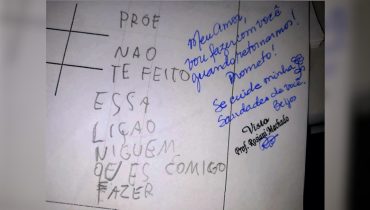 PROF
NAO
TE FEITO
ESSA
LIÇAO
NIGUEM
QE/ES COMIGO
FAZER
Meu Amor,
vou fazer com você
quando retornarmos!
Prometo!
Se cuide minha
Saudades de você.
Beijos
Visto
Prof. Rosiani Machado